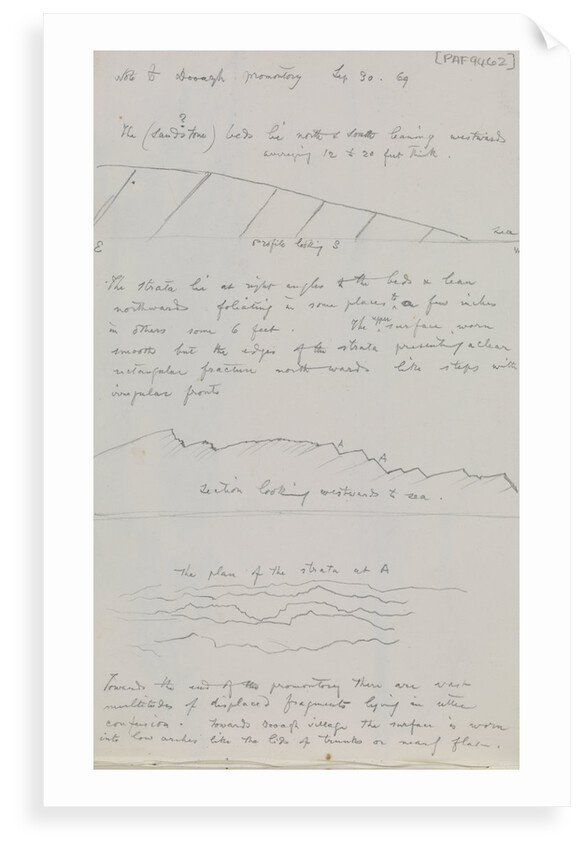 [PAF9462]
Note to Dooagh promontory Sep. 30. 69
?
The (sandstone) beds lie north & south leaning westwards
averaging 12 to 20 feet thick.
sea
E profile looking S W
The strata lie at right angles to the beds & lean
northwards foliating in some places to a few inches
in others some 6 feet. The upper surface worn
smooth but the edges of the strata presenting a clear
rectangular fracture northwards like steps with
irregular fronts
A A
Section looking westwards to sea.
The plan of the strata at A
Towards the end of the promontory there are vast
multitudes of displaced fragments lying in utter
confusion. Towards Dooagh village the surface is worn
into low arches like the lids of trunks or nearly flat.